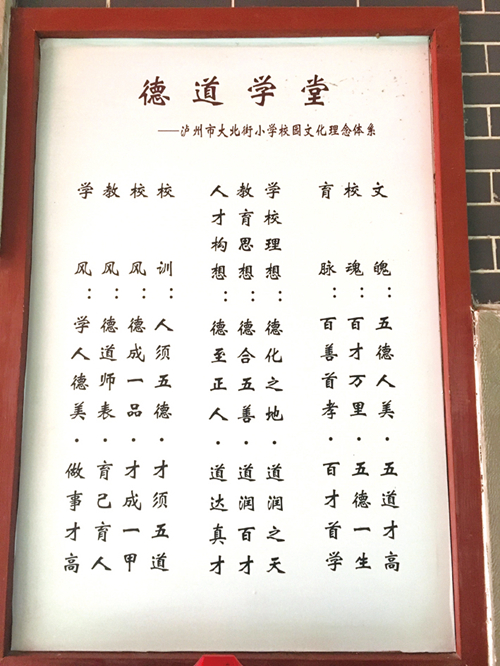 德道学堂
——泸州市大北街小学校园文化理念体系
文魄：五德人美·五道才高
校魂：百才万里·五德一生
育脉：百善首孝·百才首学
学校理想：德化之地·道润之天
教育思想：德合五善·道润百才
人才构想：德至正人·道达真才
校训：人须五德·才须五道
校风：德成一品·才成一甲
教风：德道师表·育己育人
学风：学人德美·做事才高